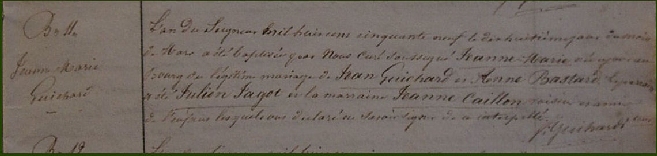 Jeanne Marie
Guichard
L'an du Seigneur mil huit cent cinquante neuf le dix huitième jour du mois
de Mars a été baptisée par Nous Curé soussigné Jeanne-Marie née au
bourg de légitime mariage de Jean Guichard et Anne Bastard le parrain
a été Julien Jagot et la marraine Jeanne Caillon
de l'enfant lesquels ont déclaré ne savoir signer de ce interpellé
Guichard